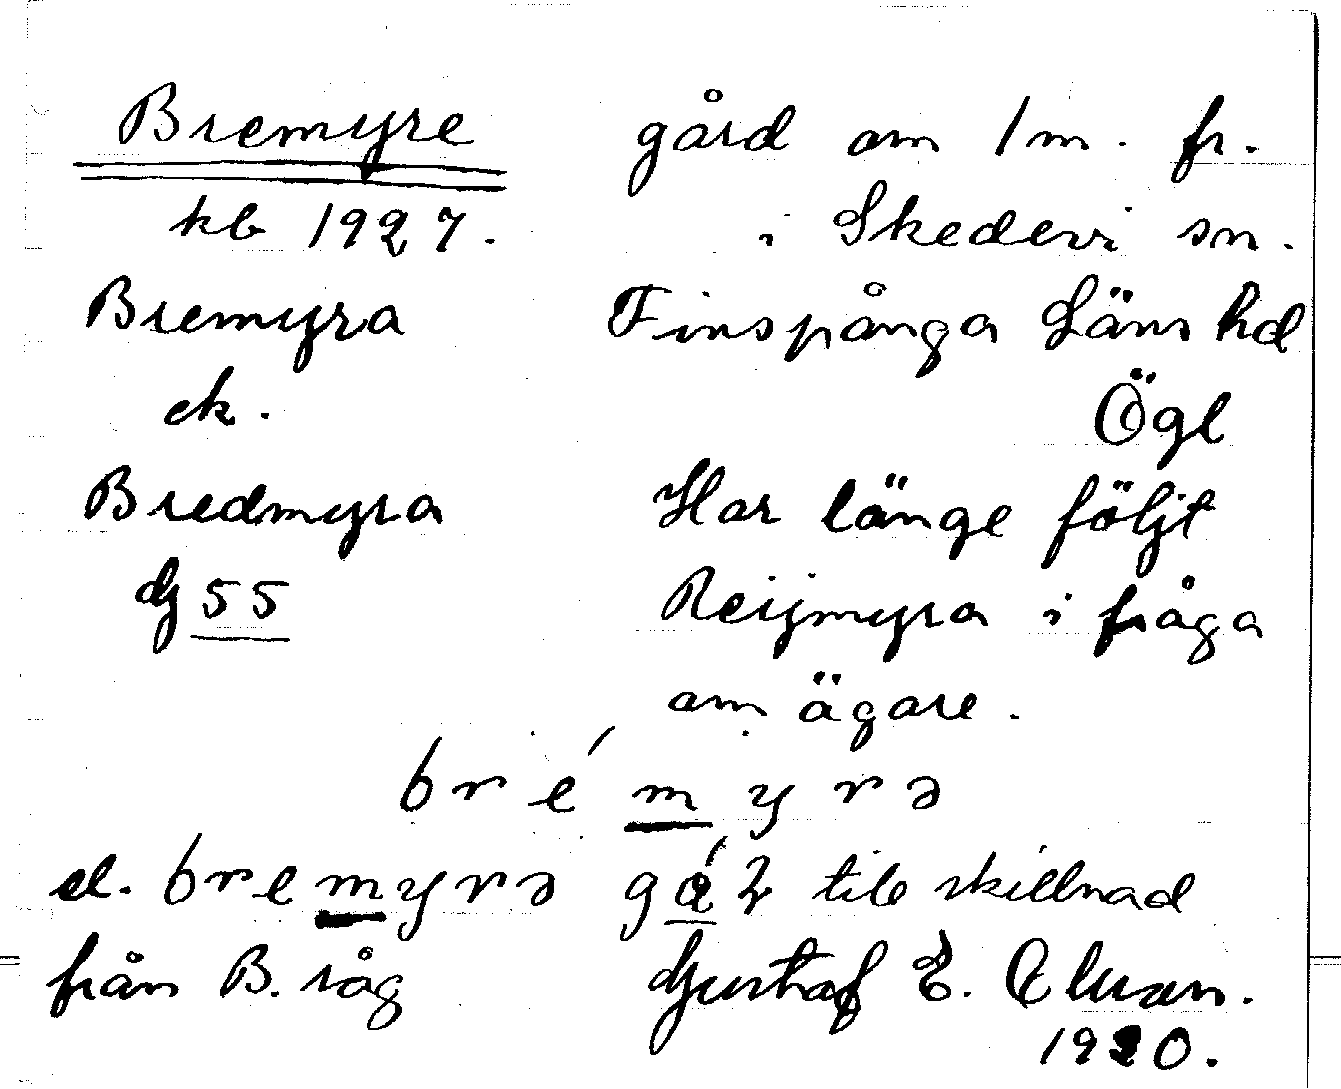 Bremyre gård om 1 m. fr.
kb 1927. i Skedevi sn.
Bremyra Finspånga Läns hd
ek. Ögl
Bredmyra Har länge följt
dj 55 Reijmyra i fråga
om ägare.
bré m y r ə
el. b r e m y r ə till skillnad
från B. såg Gustaf E. Clusson.
1920.